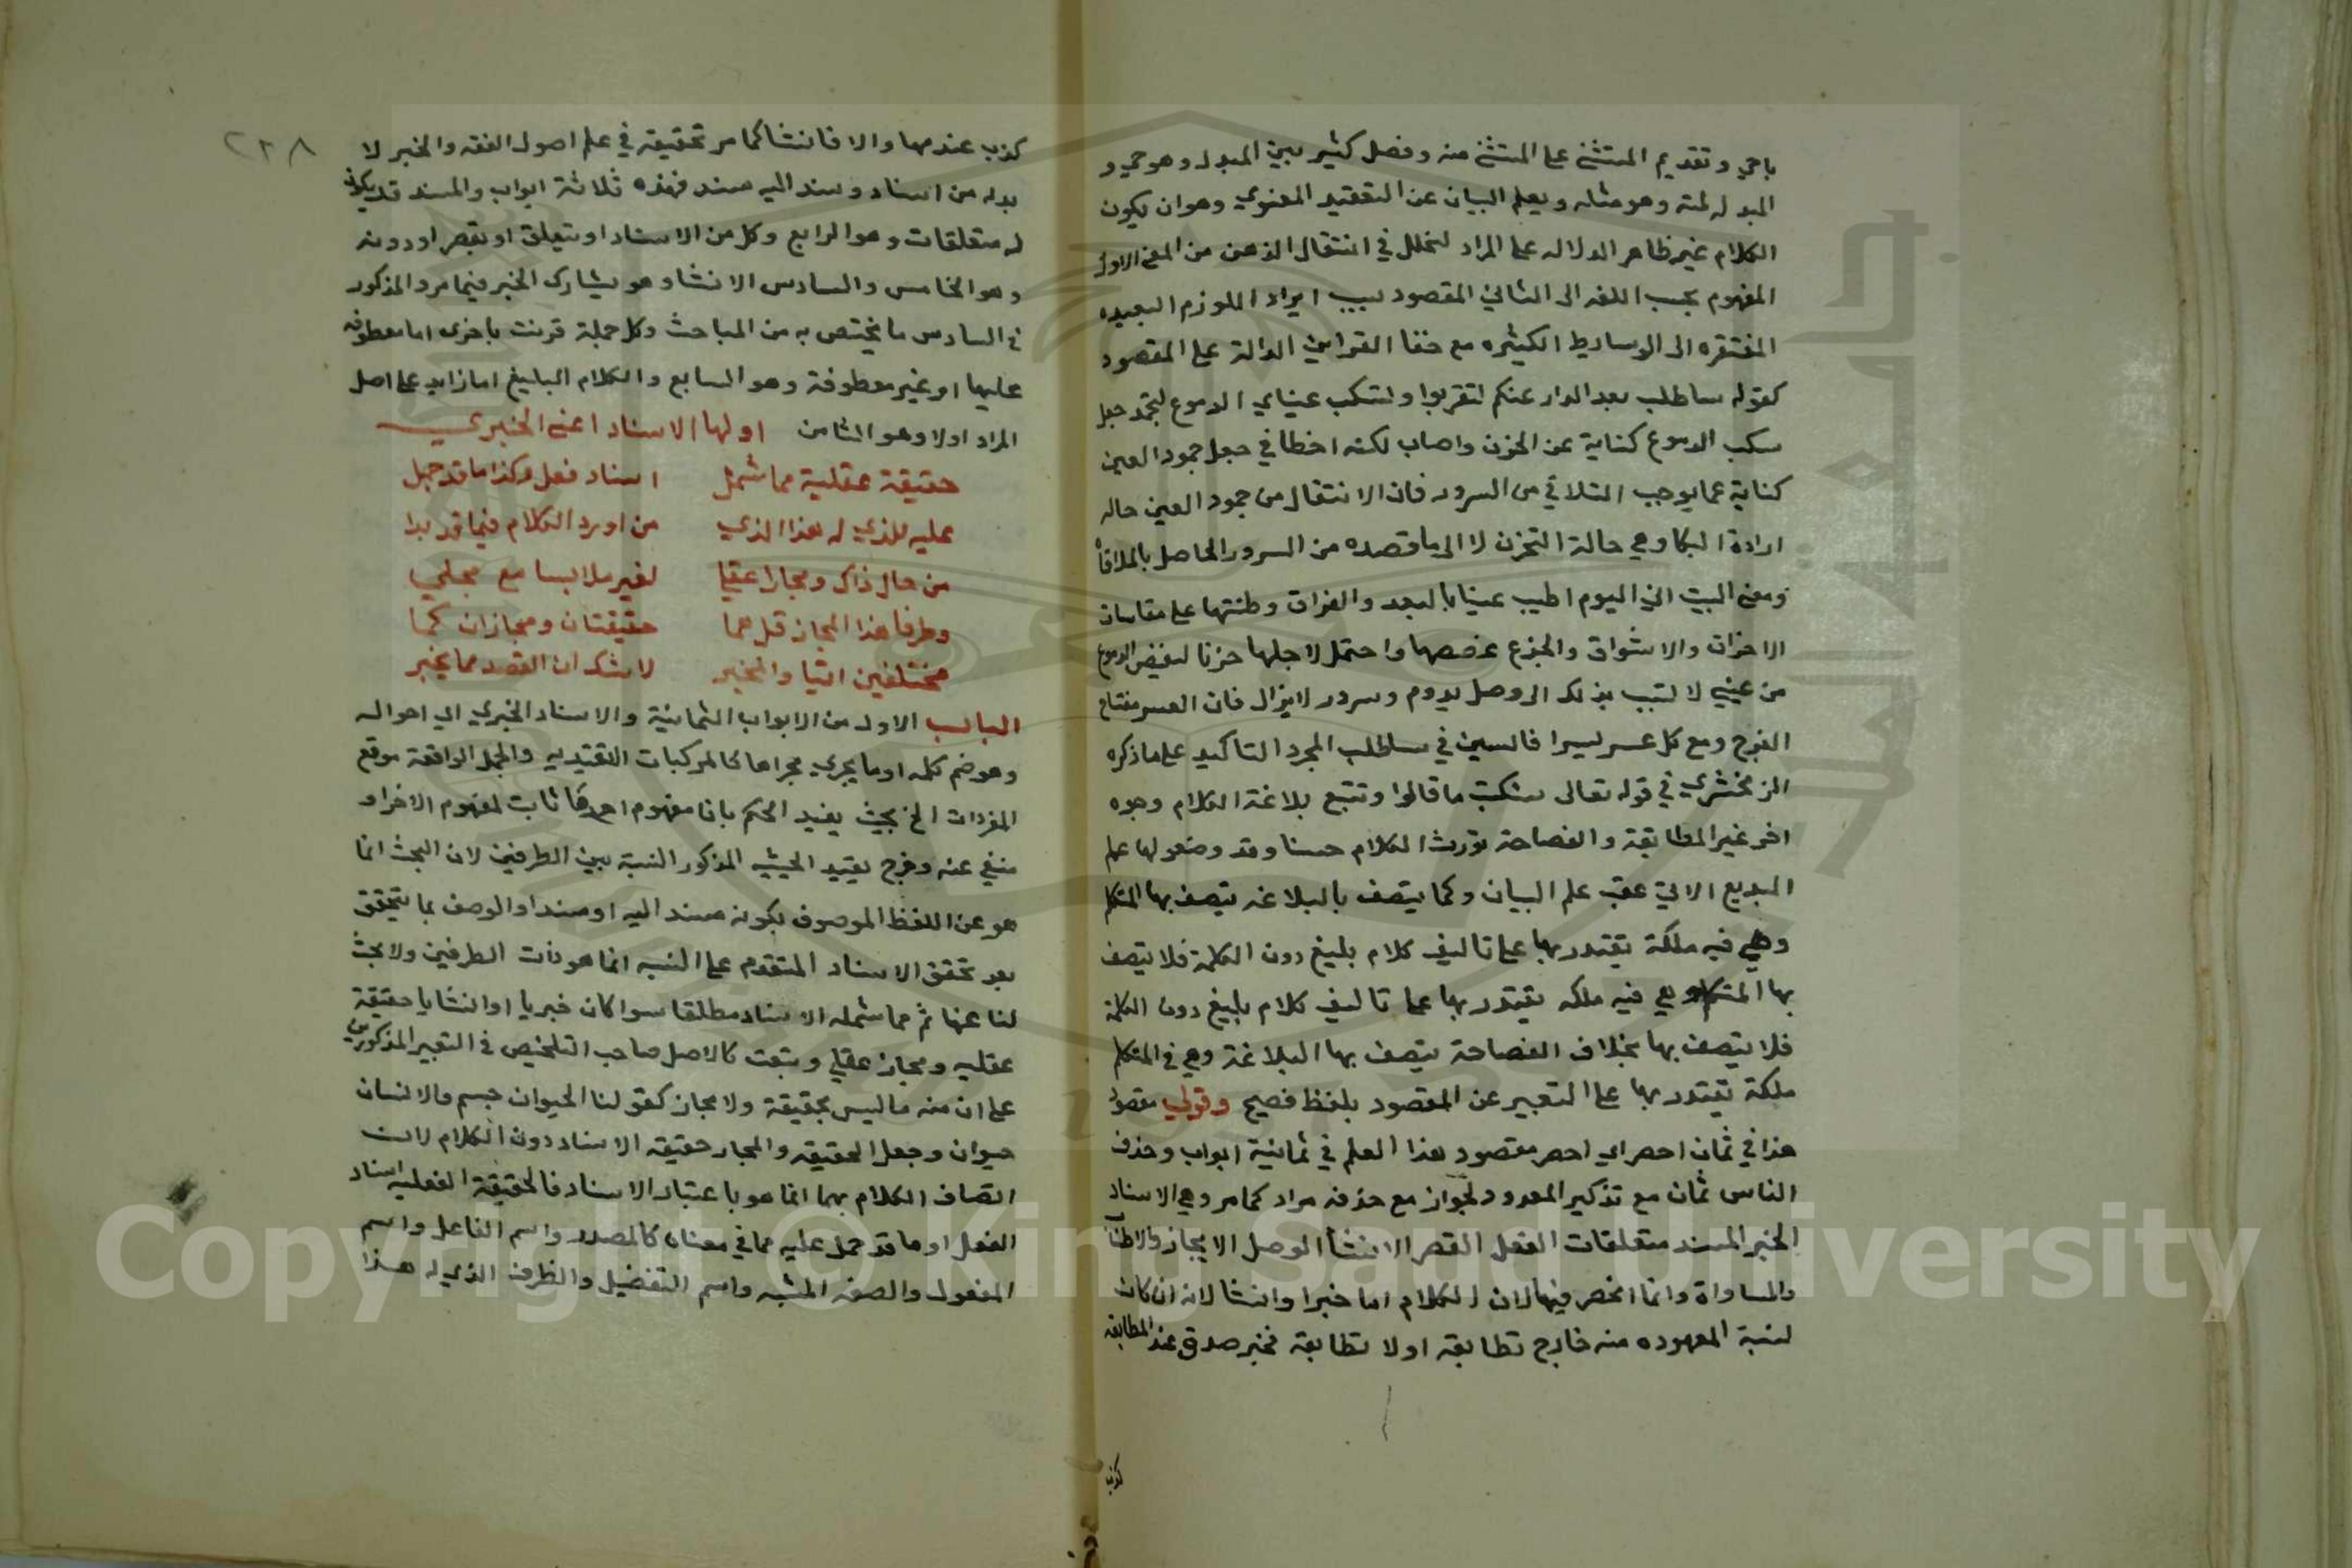 باجي وتقديم المستثنى على المستثنى منه وفصل كثير بين المبدل وهو حي و
المبدل منه وهو مثله ويعلم البيان عن التعقيد المعنوي وهو ان يكون
الكلام غير ظاهر الدلاله على المراد لخلل في انتقال الذهن من المعنى الاول
المفهوم بحسب اللغه الى الثاني المقصود بسبب ايراد اللوازم البعيده
المفتقره الى الوسايط الكثيره مع خفا القراين الدالة على المقصود
كقوله ساطلب بعد الدار عنكم لتقربوا وتسكب عيناي الدموع لتجمد جعل
سكب الدموع كناية عن الحزن واصاب لكنه اخطا في جعل جمود العين
كناية عما يوجب التلاقي من السرور فان الانتقال من جمود العين حاله
ارادة البكا وهي حالة التحزن لا الى ما قصده من السرور الحاصل بالملاقاة
ومعنى البيت اني اليوم اطيب عينا بالبعد والفراق وطنتها على مقاسات
الاحزان والاشواق والجزع غصصها واحتمل لاجلها حزنا لفيض الدموع
من عيني لا تسبب بذلك الى وصل يدوم وسرور لا يزال فان العسر مفتاح
الفرج ومع كل عسر يسيرا فالسين في ساطلب لمجرد التاكيد على ما ذكره
الزمخشري في قوله تعالى سنكتب ما قالوا وتتبع بلاغة الكلام وجوه
اخر غير المطابقة والفصاحة تورث الكلام حسنا وقد وضعوا لها علم
البديع الاتي عقب علم البيان وكما يتصف بالبلاغه يتصف بها المتكلم
وهي فيه ملكة يقتدر بها على تاليف كلام بليغ دون الكلمة فلا يتصف
بها المتكلم وهي فيه ملكه يقتدر بها على تاليف كلام بليغ دون الكلمة
فلا يتصف بها بخلاف الفصاحة يتصف بها البلاغة وهي في المتكلم
ملكة يقتدر بها على التعبير عن المقصود بلفظ فصيح وقولي مقصود
هذا في ثمان احصر اي احصر مقصود هذا العلم في ثمانية ابواب وحذف
الناس ثمان مع تذكير المعدود لجواز مع حذفه مراد كما مر وهي الاسناد
الخبر المسند متعلقات الفعل القصر الانشا الوصل الايجاز والاطناب
والمساواة وانما انحصر فيها لان الكلام اما خبرا وانشا لانه ان كان
لنسبة المعهوده منه خارج تطابقه او لا تطابقه فخبر صدق عند المطابقة
كذب
٢٣٨
كذب عندمها والا فانشا كما مر تحقيقه في علم اصول الفقه والخبر لا
بد له من اسناد وسند اليه مسند فهذه ثلاثة ابواب والمسند قد يكون
له متعلقات وهو الرابع وكل من الاسناد او متعلق او بقصر او دونه
وهو الخامس والسادس الانشا وهو يشارك الخبر فيما مر والمذكور
في السادس ما يختص به من المباحث وكل جملة قرنت باخرى اما معطوفه
عليها او غير معطوفة وهو السابع والكلام البليغ اما زايد على اصل
المراد اولا وهو الثامن اولها الاسناد اعني الخبري
حقيقة عقلية مما شمل اسناد فعل وكذا ما قد حمل
عليه للذي له هذا الذي من اورد الكلام فيما قد بدا
من حال ذاك ومجازا عقليا لغير ملابسا مع مجلي
وطرفا هذا المجاز قل هما حقيقتان ومجازان كما
مختلفين اتيا والمخبر لا شك ان القصد مما يخبر
الباب الاول من الابواب الثمانية والاسناد الخبري اي احواله
وهو ضم كلمه او ما يجري مجراها كالمركبات التقييديه والجمل الواقعة موقع
المفردات الخ بحيث يفيد الحكم بان مفهوم احدها ثابت لمفهوم الاخر او
منفي عنه وخرج بقيد الحيثيه المذكور النسبة بين الطرفين لان البحث انما
هو عن اللفظ الموصوف بكونه مسند اليه او مسندا والوصف بما يتحقق
بعد تحقق الاسناد المتقدم على النسبه انما هو ذات الطرفين ولا بحث
لنا عنها ثم مما شمله الاسناد مطلقا سوا كان خبريا او انشايا حقيقة
عقليه ومجاز عقلي وتبعت كالاصل صاحب التلخيص في التعبير المذكور من
على ان منه ما ليس بحقيقة ولا مجاز كقولنا الحيوان جسم والانسان
حيوان وجعل الحقيقه والمجاز حقيقه الاسناد دون الكلام لان
اتصاف الكلام بهما انما هو باعتبار الاسناد فالحقيقة الفعليه اسناد
الفعل او ما قد حمل عليه مما في معناه كالمصدر واسم الفاعل واسم
المفعول والصفه المشبه واسم التفضيل والظرف الذي له هذا
Copyright © King Saud University